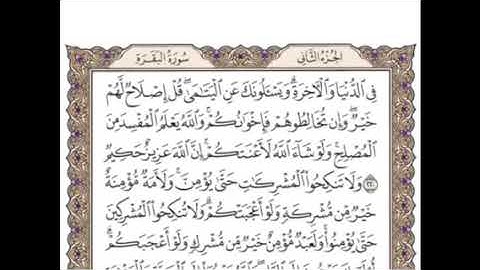 سُورَةُ البَقَرَةِ
الجُزْءُ الثَّانِي
فِي الدُّنْيَا وَالْآخِرَةِ وَيَسْأَلُونَكَ عَنِ الْيَتَامَىٰ قُلْ إِصْلَاحٌ لَّهُمْ
خَيْرٌ وَإِن تُخَالِطُوهُمْ فَإِخْوَانُكُمْ وَاللَّهُ يَعْلَمُ الْمُفْسِدَ مِنَ
الْمُصْلِحِ وَلَوْ شَاءَ اللَّهُ لَأَعْنَتَكُمْ إِنَّ اللَّهَ عَزِيزٌ حَكِيمٌ
٢٢٠ وَلَا تَنكِحُوا الْمُشْرِكَاتِ حَتَّىٰ يُؤْمِنَّ وَلَأَمَةٌ مُّؤْمِنَةٌ
خَيْرٌ مِّن مُّشْرِكَةٍ وَلَوْ أَعْجَبَتْكُمْ وَلَا تُنكِحُوا الْمُشْرِكِينَ
حَتَّىٰ يُؤْمِنُوا وَلَعَبْدٌ مُّؤْمِنٌ خَيْرٌ مِّن مُّشْرِكٍ وَلَوْ أَعْجَبَكُمْ